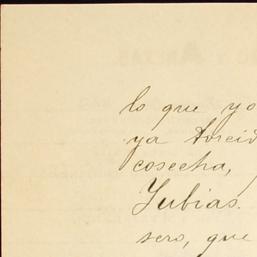 lo que yo
ya torcid
cosecha,
Yubias.
sero, que